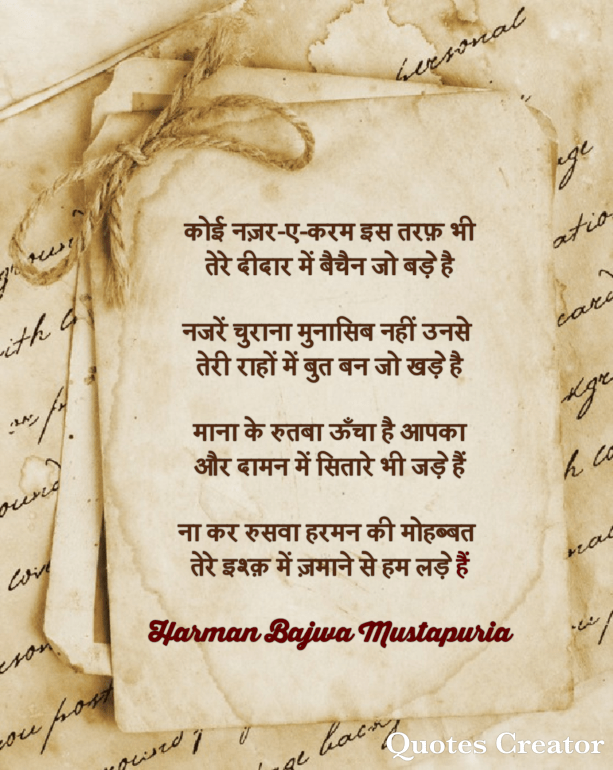 कोई नज़र-ए-करम इस तरफ़ भी
तेरे दीदार में बैचैन जो बड़े है
नजरें चुराना मुनासिब नहीं उनसे
तेरी राहों में बुत बन जो खड़े है
माना के रुतबा ऊँचा है आपका
और दामन में सितारे भी जड़े हैं
ना कर रुसवा हरमन की मोहब्बत
तेरे इश्क़ में ज़माने से हम लड़े हैं
Harman Bajwa Mustapuria
Quotes Creator
personal